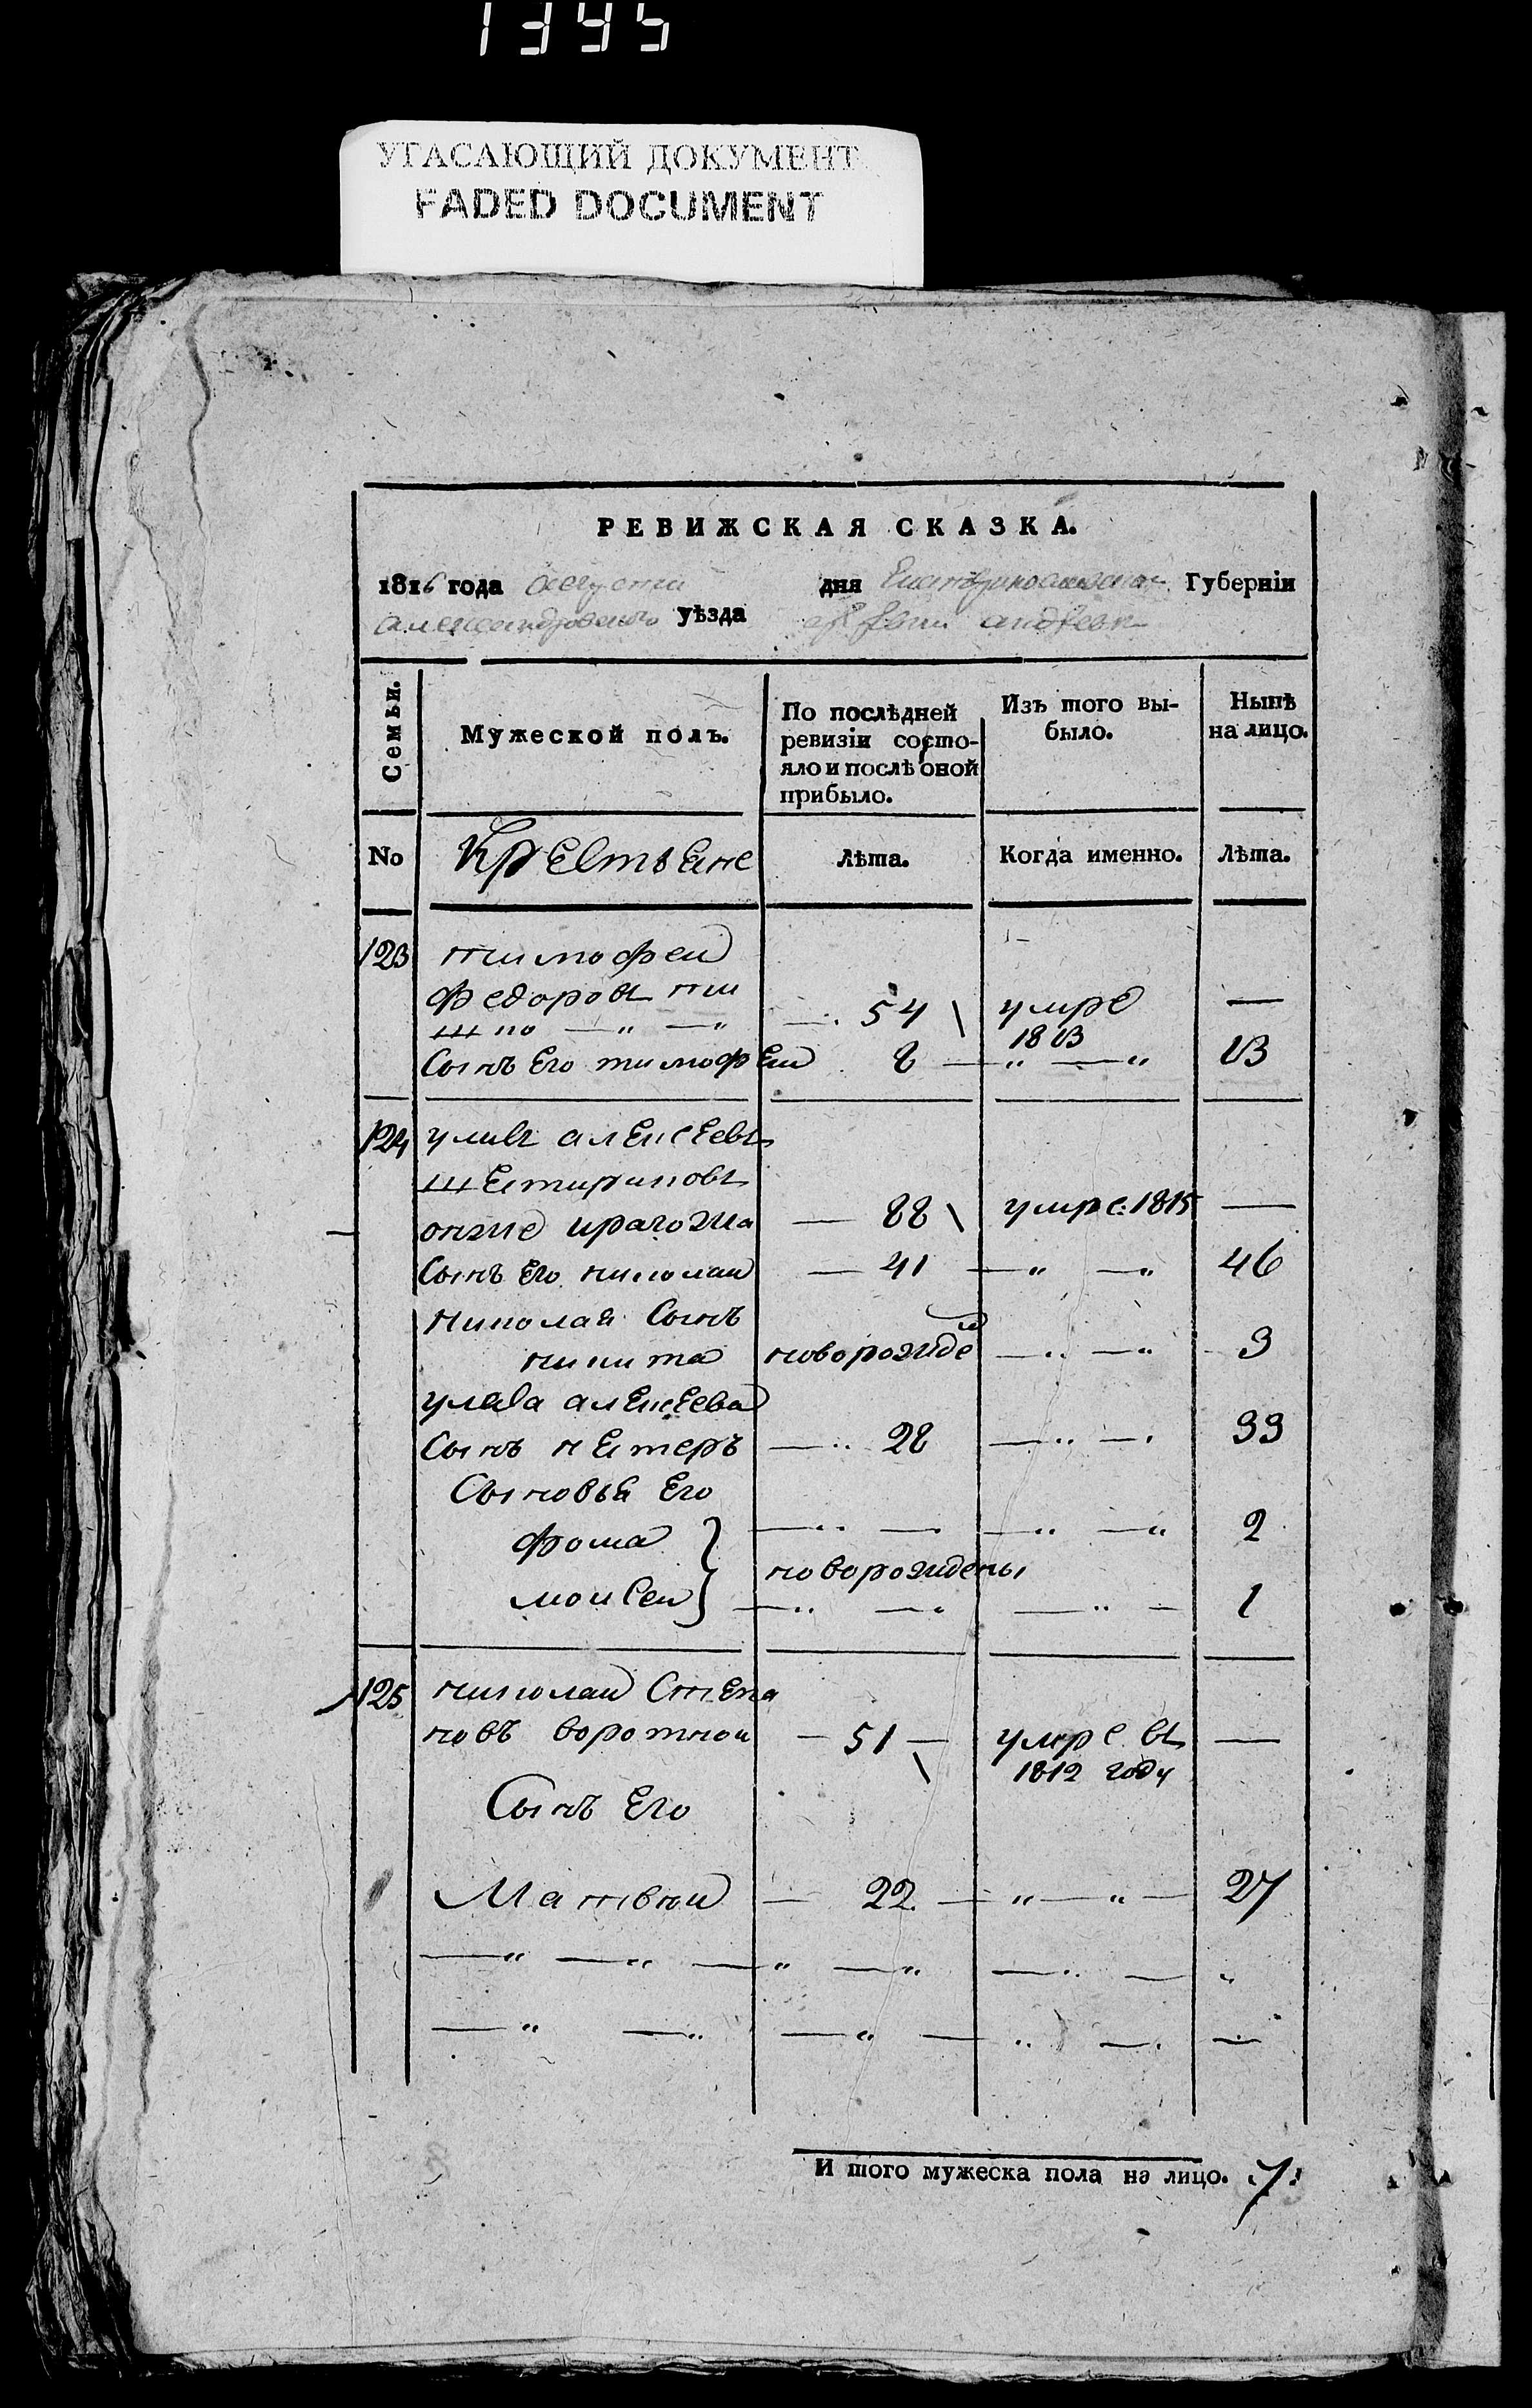 1395
УГАСАЮЩИЙ ДОКУМЕНТ
FADED DOCUMENT
РЕВИЖСКАЯ СКАЗКА.
1816 года августа дня Екатеринославской Губерніи
александровского уѣзда андреевк
Семьи. Мужеской полъ. По послѣдней ревизіи состояло и послѣ оной прибыло. Изъ того выбыло. Нынѣ на лицо.
No Крестьяне Лѣта. Когда именно. Лѣта.
123 тимофеи
федоровъ ти
шко — „ — „ — 54 \ умре —
1813
Сынъ Его тимофеи 8 — „ — „ 13
124 улиꙗ алексеевъ
шестириковъ
онже 88 \ умре: 1815 —
Сынъ Его николаи — 41 — „ — „ 46
николая Сынъ
никита новорожде — „ — „ 3
алексеева
Сынъ нестеръ — „ 28 — „ — 33
Сыновья Его
фома } — „ — — „ — „ 2
новорождены
моисеи } — „ — „ — „ — 1
125 николаи Степа
новъ воротнои — 51 — \ умре въ —
1812 году
Сынъ Его
Матвѣи — 22 — „ — „ — 27
— „ — „ — „ — „ — „ — „
— „ — „ — „ — „ — —
И того мужеска пола на лицо. 7: